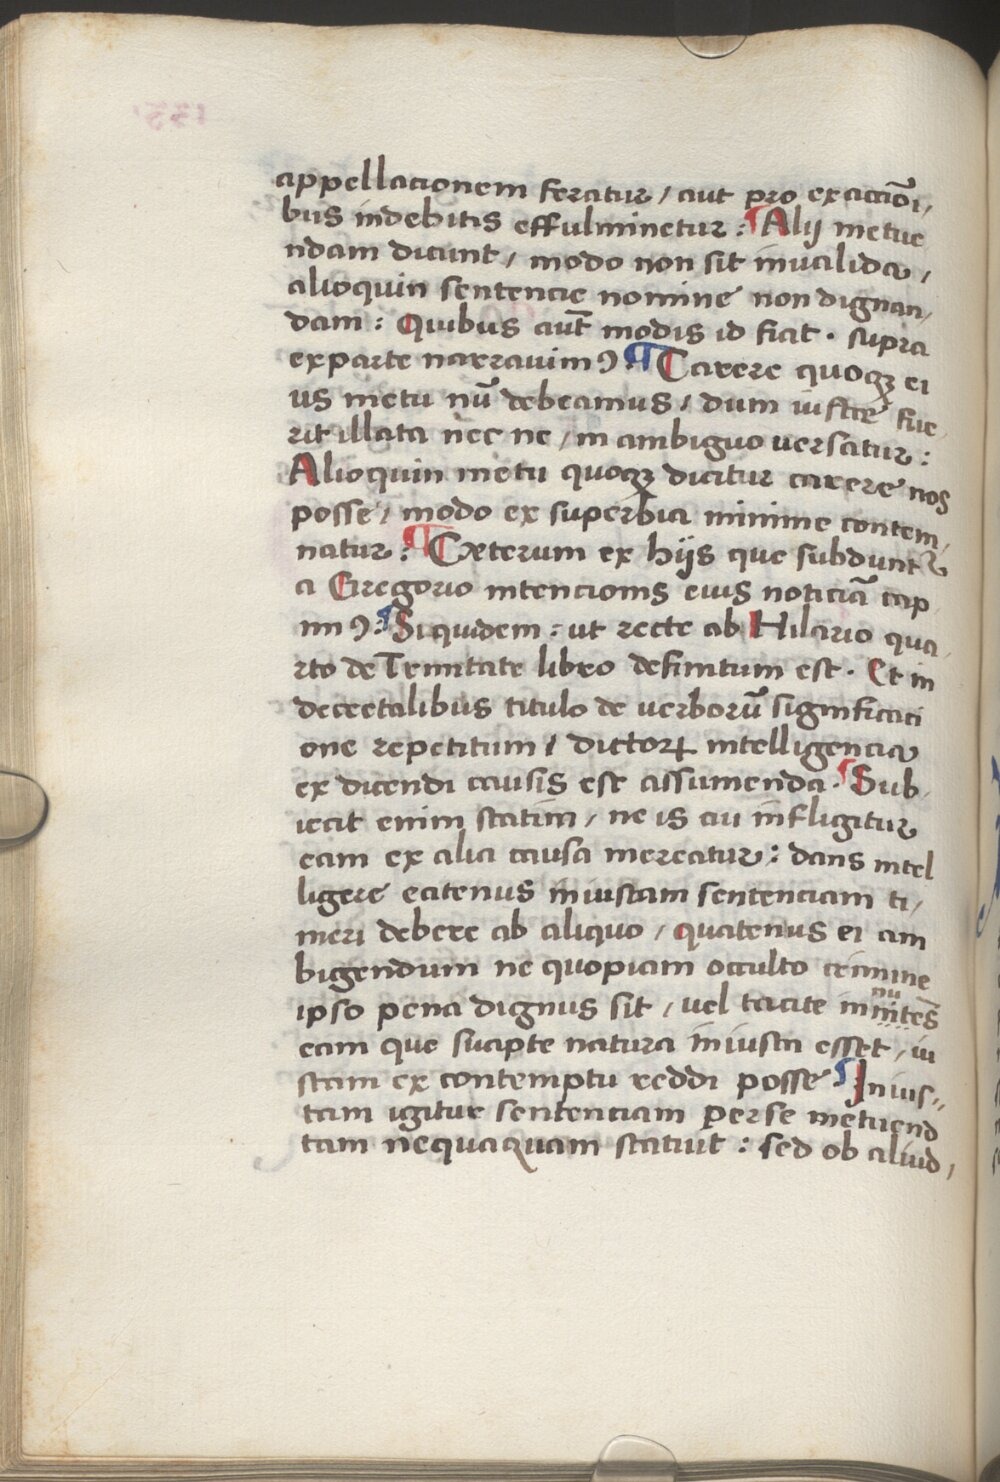 appellacionem feratur / aut pro exaccio͠i /
bus indebitis effulminetur : ¶ Alij metue
ndam dicunt / modo non sit inualida /
alioquin sentencie nomine non dignan /
dam : Quibus aut̄ modis id fiat . supra
ex parte narrauimꝯ : ¶ Carere quoqꝫ ei
us metu nū debeamus / dum iuste fue
rit illata nec ne / in ambiguo uersatur :
Alioquin metu quoqꝫ dicitur carere nos
posse / modo ex superbia minime contem /
natur : ¶ Cæterum ex hijs que subduntꝛ
a Gregorio intencionis eius noticiā cap
imꝯ : ¶ Siquidem : ut recte ab Hilario qua
rto de Trinitate libro definitum est . Et in
decretalibus titulo de uerborū significaci
one repetitum / dictorꝝ intelligencia
ex dicendi causis est assumenda . ¶ Sub
iecit enim statim / ne is cui infligitur
eam ex alia causa mereatur : dans intel
ligere eatenus iniustam sentenciam ti /
meri debere ab aliquo / quatenus ei am
bigendum ne quopiam occulto crimine
ipso pena dignus sit / uel tacite innuites̄
eam que suapte natura iniusta esset / iu
stam ex contemptu reddi posse . ¶ Inius =
tam igitur sentenciam per se metuend
tam nequaquam statuit : sed ob aliud /